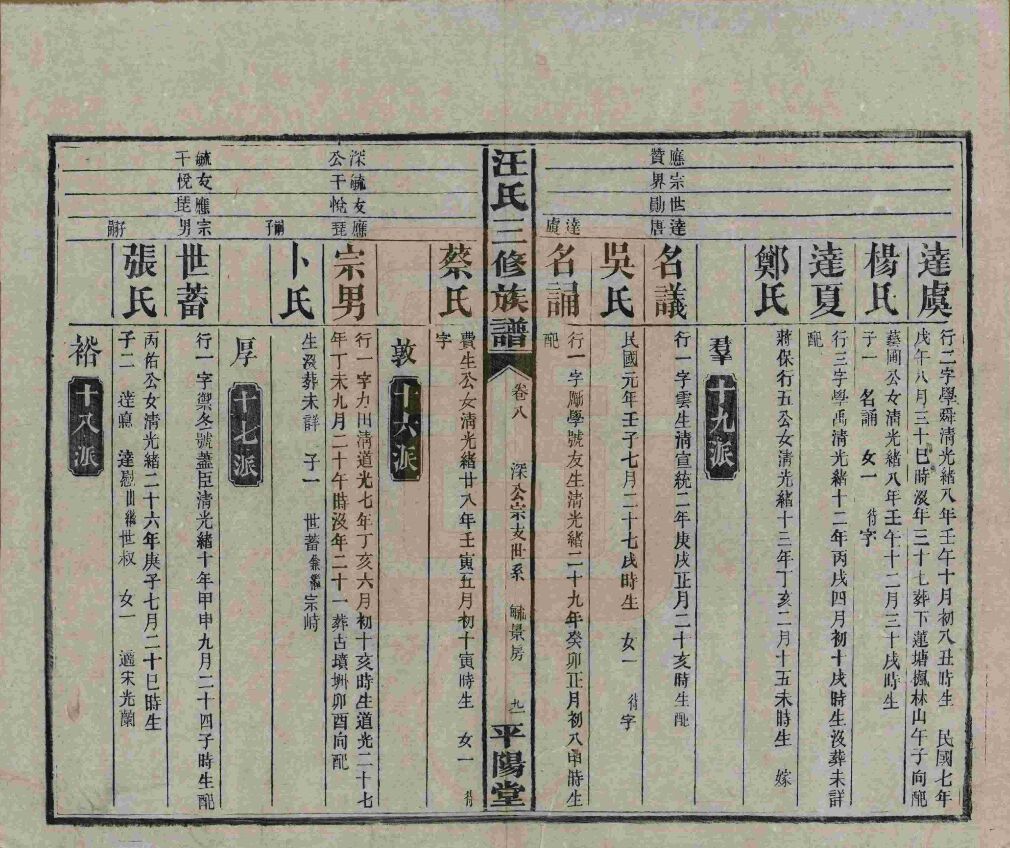 應宗世達
贊界勛唐
達虞
行二字學舜清光緒八年壬午十月初八丑時生 民國七年
戊午八月三十巳時沒年三十七葬下蓮塘楓林山午子向配
楊氏
藝圃公女清光緒八年壬午十二月三十戌時生
子一 名誦 女一 待字
達夏
行三字學禹清光緒十二年丙戌四月初十戌時生沒葬未詳
配
鄭氏
蔣保行五公女清光緒十三年丁亥二月十五未時生 嫁
羣 十九派
名議
行一字雲生清宣統二年庚戌正月二十亥時生配
吳氏
民國元年壬子七月二十七戌時生 女一 待字
達虞
名誦
行一字勵學號友生清光緒二十九年癸卯正月初八申時生
配
汪氏三修族譜 卷八 深公宗支世系 毓景房 九一 平陽堂
蔡氏
費生公女清光緒廿八年壬寅五月初十寅時生 女一 待
字
敦 十六派
深毓友應
公干悅琵
宗男
行一字九田清道光七年丁亥六月初十亥時生道光二十七
年丁未九月二十午時沒年二十一葬古墳坳卯酉向配
卜氏
生沒葬未詳 子一 世蓄兼繼宗崎
厚 十七派
嗣子
毓友應宗
干悅琵男
世蓄
行一字禦冬號蓋臣清光緒十年甲申九月二十四子時生配
張氏
丙佑公女清光緒二十六年庚子七月二十巳時生
子二 達 達慰出繼世叔 女一 適宋光蘭
裕 十八派